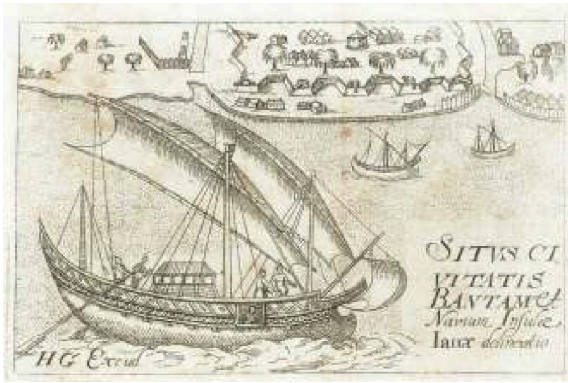 SITVS CI
VITATIS
BANTAM et
Navium Insulæ
Iauæ delineatio
HG Excud